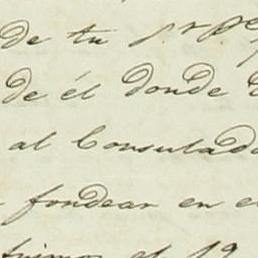 de tu
de él donde
al Consulado
fondear en el
el 19